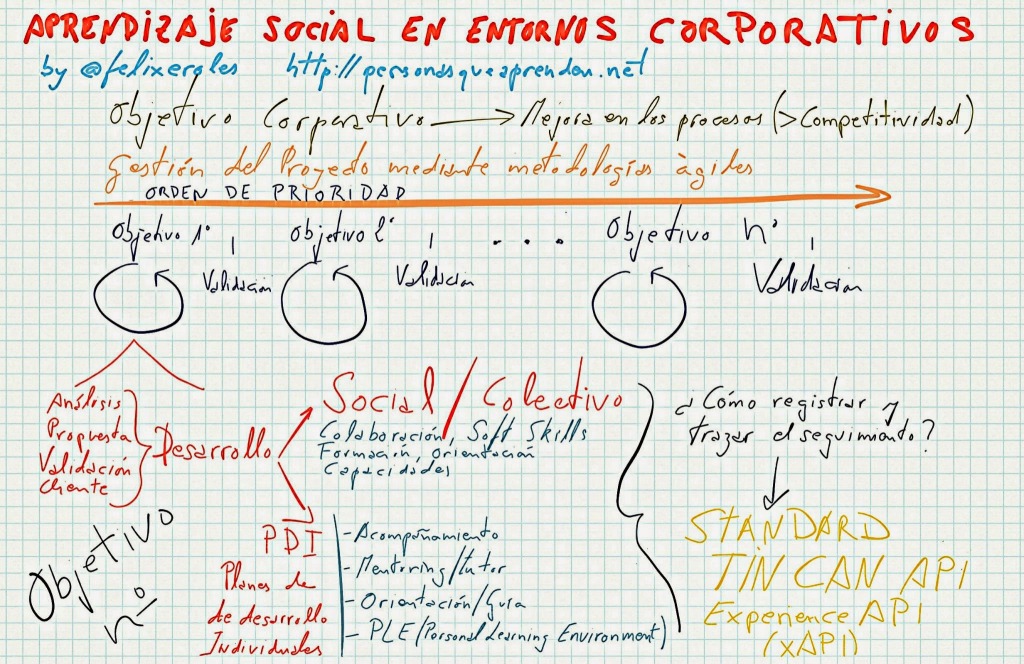 APRENDIZAJE SOCIAL EN ENTORNOS CORPORATIVOS
by @felixeroles http://personasqueaprenden.net
Objetivo Corporativo → Mejora en los procesos (> Competitividad)
Gestión del Proyecto mediante metodologías àgiles
ORDEN DE PRIORIDAD
Objetivo 1º
Validación
Objetivo 2º
Validación
. . . .
Objetivo nº
Validación
Análisis
Propuesta
Validación
Cliente
Desarrollo
Social / Colectivo
Colaboración, Soft Skills
Formación, orientación
Capacidades
PDI
Planes de
de desarrollo
Individuales
- Acompañamiento
- Mentoring/tutor
- Orientación/Guía
- PLE (Personal Learning Environment)
¿Cómo registrar y
trazar el seguimiento?
STANDARD
TIN CAN API
Experience API
(xAPI)
Objetivo
nº